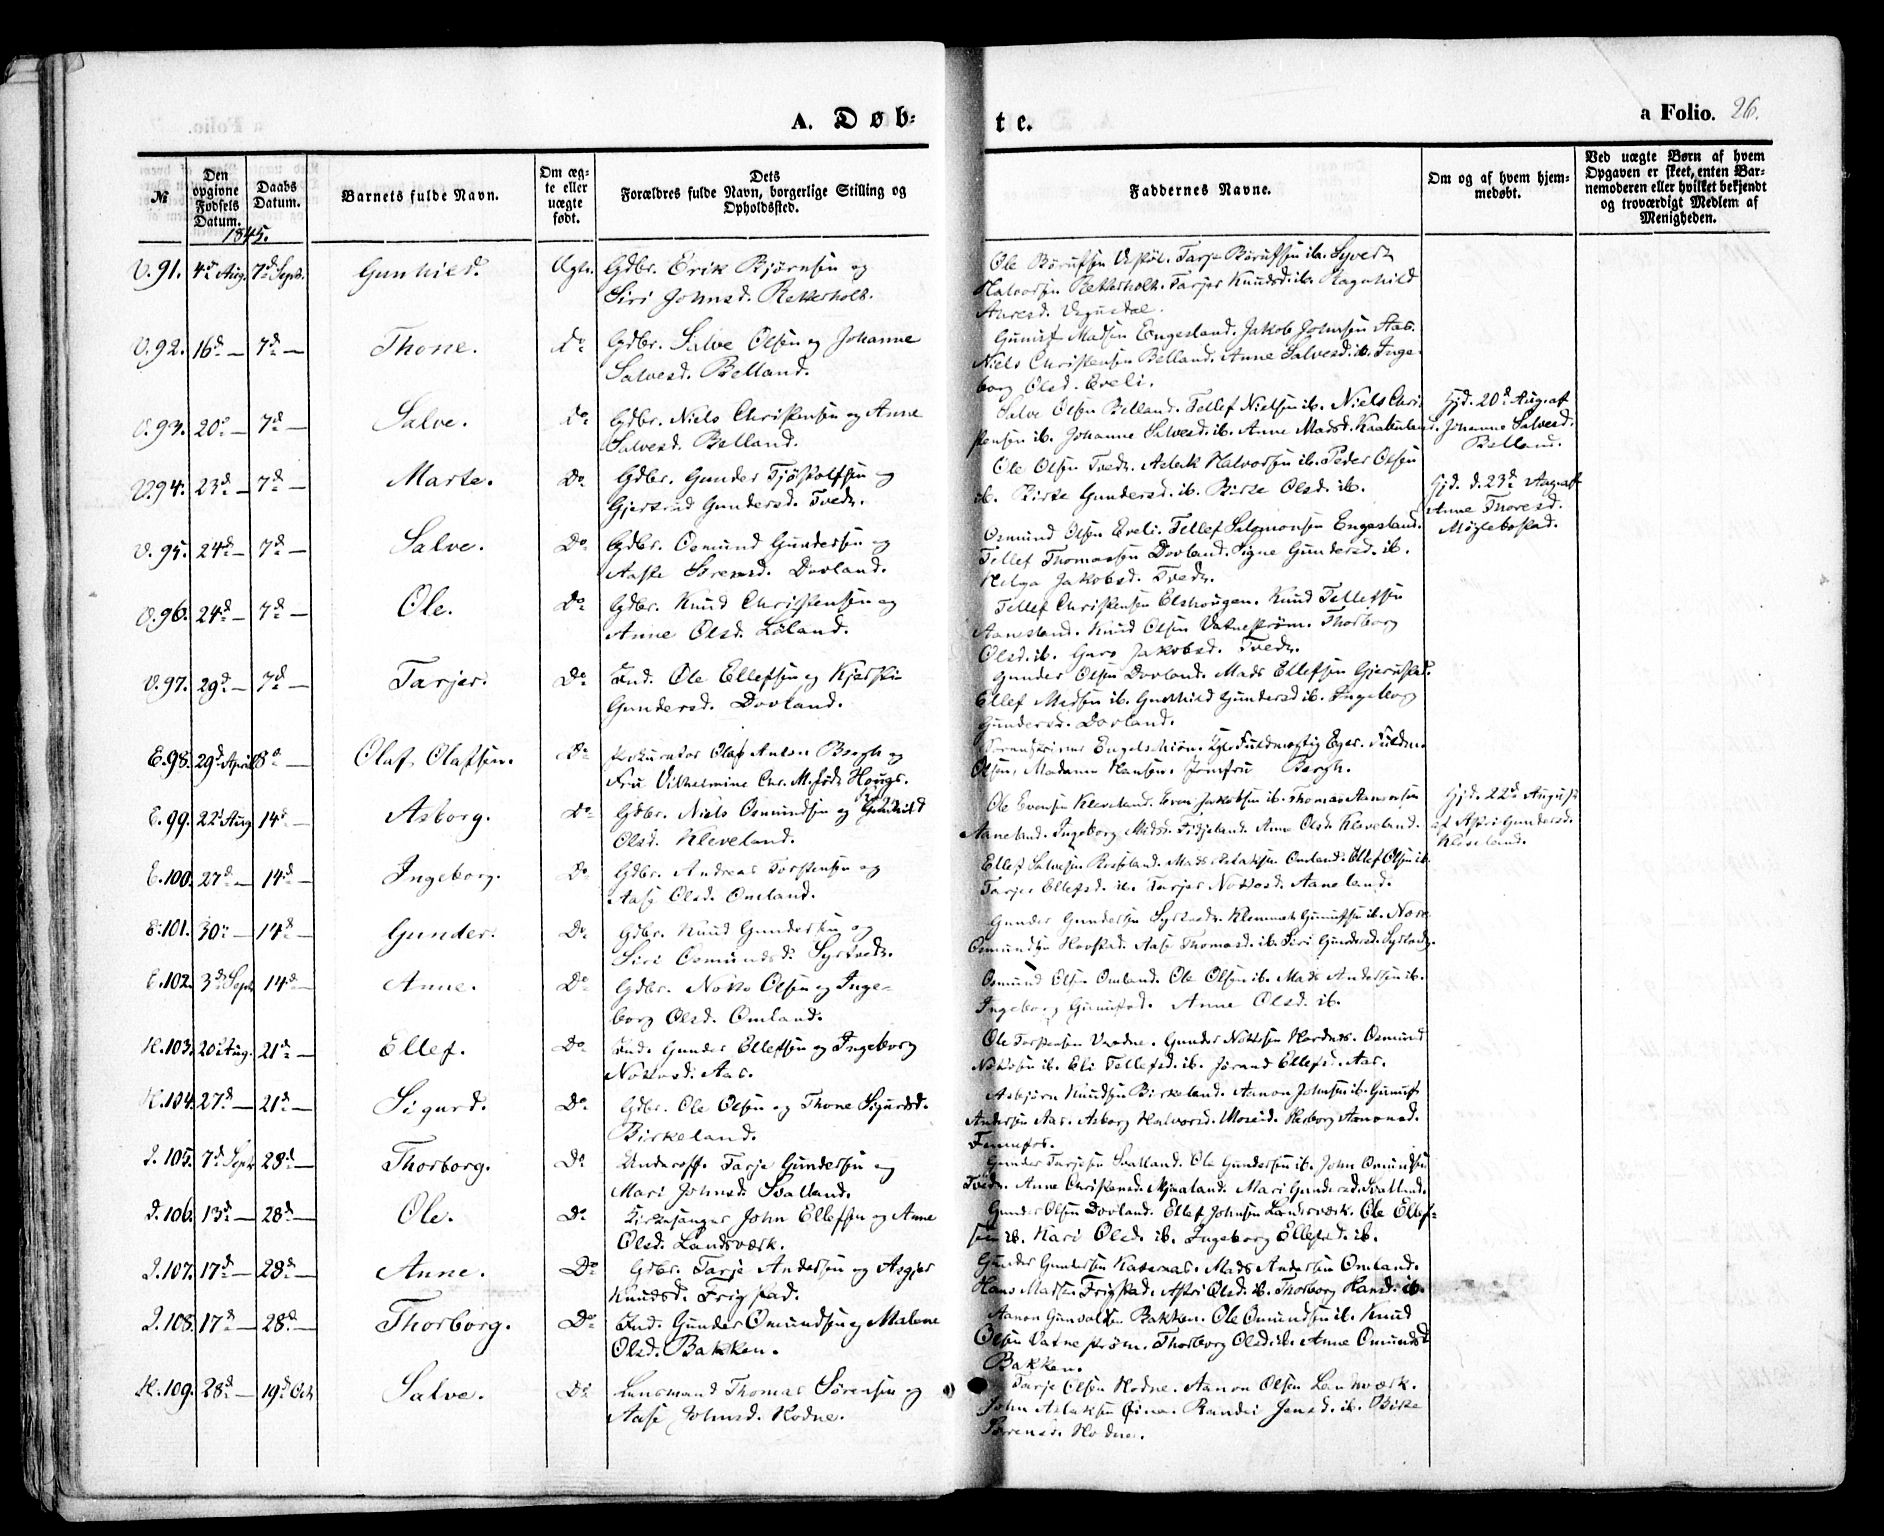 A. Døb=
te.
a Folio. 26.
№
Den opgivne Fødsels Datum.
Daabs Datum.
Barnets fulde Navn.
Om ægte eller uægte født.
Dets
Forældres fulde Navn, borgerlige Stilling og Opholdssted.
Faddernes Navne.
Om og af hvem hjemmedøbt.
Ved uægte Børn af hvem Opgaven er skeet, enten Barnemoderen eller hvilket bekjendt og troværdigt Medlem af Menigheden.
1845.
V. 91. 4d Aug. 7d Septb. Gunhild. Ægte. Gdbr. Erik Bjørnsen og
Siri Johnsd. Retterholt.
Halvorsen Retterholt. Tarjer Knudsd. ib. Ragnhild
V. 92. 16d — 7d — Thone. Do Gdbr. Salve Olsen og Johanne
Salvesd. Belland.
Gunuf Madsen Engesland. Jakob Johnsen Aas.
Niels Christensen Belland. Anne Salvesd. ib. Inge
borg Olsd. Eveli.
V. 93. 20d — 7d — Salve. Do Gdbr. Niels Christensen og Anne
Salvesd. Belland.
Salve Olsen Belland. Tellef Nielsen ib. Niels Chri
stensen ib. Johanne Salvesd. ib. Anne Madsd.
Hjd. 20d Aug. af
Johanne Salvesd.
Belland.
V. 94. 23d — 7d — Marte. Do Gdbr. Gunder Tjøstolfsen og
Gjertrud Gundersd. Tvedt.
Ole Olsen Tvedt. Aslak Halvorsen ib. Peder Olsen
ib. Birte Gundersd. ib. Birte Olsd. ib.
Hjd. d. 23d Aug. af
Anne Thoresd.
Møglebostad.
V. 95. 24d — 7d — Salve. Do Gdbr. Osmund Gundersen og
Aaste Sørensd. Dovland.
Osmund Olsen Eveli. Tellef Salomonsen Engesland.
Tellef Thomassen Dovland. Signe Gundersd. ib.
Helga Jakobsd. Tvedt.
V. 96. 24d — 7d — Ole. Do Gdbr. Knud Christensen og
Anne Olsd. Løland.
Tellef Christensen Elshougen. Knud Tellefsen
Aanesland. Knud Olsen Vatnestrøm. Thorborg
Olsd. ib. Guro Jakobsd. Tvedt.
V. 97. 29d — 7d — Tarjer. Do Ind. Ole Ellefsen og Kjersti
Gundersd. Dovland.
Gunder Olsen Dovland. Mads Ellefsen
Ellef Madsen ib. Gunhild Gundersd. ib. Ingeborg
Gundersd. Dovland.
E. 98. 29d April 8d — Olaf Olafsen. Do Prokurator Olaf Anton Bergh og
Fru Vilhelmine Chr. M. født Hougs.
Olsen, Madame Hansen. Jomfru Bergh.
E. 99. 22d Aug 14d — Asborg. Do Gdbr. Niels Osmundsen og Gunhild
Olsd. Kleveland.
Ole Evensen Kleveland. Even Jakobsen ib. Thomas Aanonsen
Aaneland. Ingeborg Madsd. Fidjeland. Anne Olsd. Kleveland.
Hjd. 22d August
af Astri Gundersd.
Kleveland.
E. 100. 27d — 14d — Ingeborg. Do Gdbr. Andreas Torstensen og
Aase Olsd. Omland.
Omland. Ellef Olsen ib.
Tarjer Ellefsd. ib. Tarjer Nottosd. Aaneland.
E. 101. 30d — 14d — Gunder. Do Gdbr. Knud Gundersen og
Siri Osmundsd. Syrtveit.
Gunder Gundersen Syrtveit. Klemmet Gunufsen ib.
Osmundsen Hovstad. Aase Thomasd. ib. Siri Gundersd. Syrtveit.
E. 102. 3d Septb 14d — Anne. Do Gdbr. Notto Olsen og Inge-
borg Olsd. Omland.
Osmund Olsen Omland. Ole Olsen ib. Mads Andersen ib.
Ingeborg Gunufsd. Anne Olsd. ib.
H. 103. 20d Aug. 21d — Ellef. Do Ind. Gunder Ellefsen og Ingeborg
Nottosd. Aas.
Ole Torstensen Vradne. Gunder Nottosen Hordnes. Osmund
Nottosen ib. Eli Tellefsd. ib. Jorand Ellefsd. Aas.
H. 104. 27d — 21d — Sigurd. Do Gdbr. Ole Olsen og Thone Sigurdsd.
Birkeland.
Asbjørn Knudsen Birkeland. Aanon Johnsen ib. Gunuf
Andersen Aas. Asborg Halvorsd. Moseid. Herborg Aanonsd.
Fennefos.
I. 105. 7d Septb 28d — Thorborg. Do Underoff. Tarje Gundersen og
Mari Johnsd. Svalland.
Gunder Tarjesen Svalland. Ole Gundersen ib. John Omundsen
Tvedt. Anne Christensd. Mjaaland. Mari Gundersd. Svalland.
I. 106. 13d — 28d — Ole. Do Kirkesanger John Ellefsen og Anne
Olsd. Landsværk.
Gunder Olsen Dovland. Ellef Johnsen Landsværk. Ole Ellef-
sen ib. Kari Olsd. ib. Ingeborg Ellefsd. ib.
I. 107. 17d — 28d — Anne. Do Gdbr. Tarje Andersen og Asgjer
Knudsd. Frigstad.
Gunder Gundersen Katernas. Mads Andersen Omland.
Hans Mads. Frigstad. Astri Olsd. ib. Thorborg Hansd. ib.
I. 108. 17d — 28d — Thorborg. Do Ind. Gunder Omundsen og Malene
Olsd. Bakken.
Aanon Gunvaldsen Bakken. Ole Omundsen ib. Knud
Olsen Vatnestrøm. Thorborg Olsd. ib. Anne Omundsd
Bakken.
H. 109. 28d — 19d Octb Salve. Do Lensmand Thomas Sørensen og
Aase Johnsd. Hodne.
Tarje Olsen Hodne. Aanon Olsen Landsværk.
John Aslaksen Øina. Randei Jensd. ib. Birte
Sørensd. Hodne.